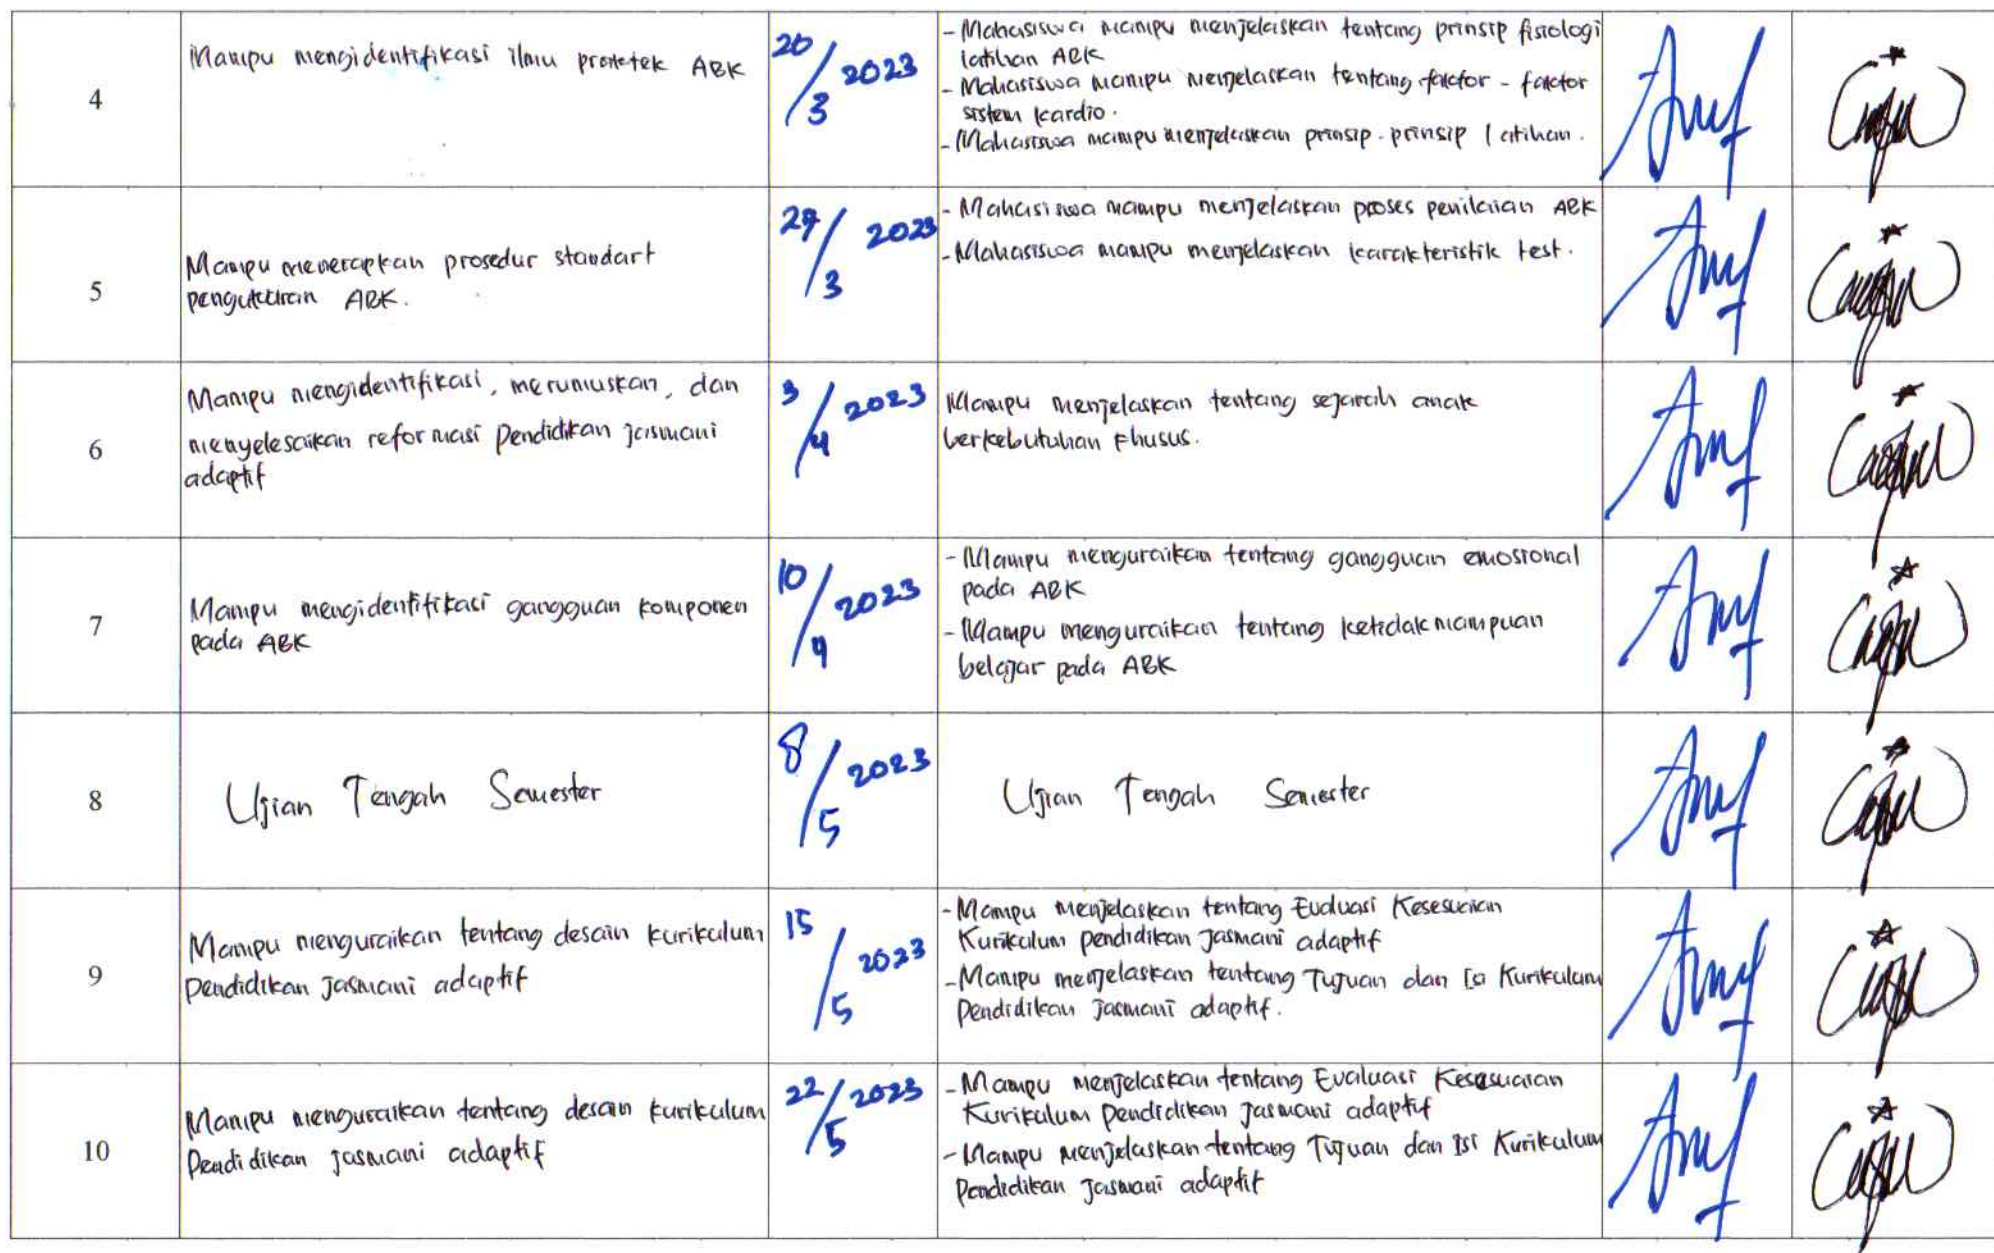 4
Mampu mengidentifikasi ilmu ABK
20/3 2023
- Mahasiswa mampu menjelaskan tentang prinsip fisiologi
latihan ABK
- Mahasiswa mampu menjelaskan tentang faktor - faktor
sistem kardio.
- Mahasiswa mampu menjelaskan prinsip-prinsip latihan.
5
Mampu menerapkan prosedur standart
pengukuran ABK.
/3 2023
- Mahasiswa mampu menjelaskan proses penilaian ABK
- Mahasiswa mampu menjelaskan karakteristik test.
6
Mampu mengidentifikasi, merumuskan, dan
menyelesaikan reformasi Pendidikan jasmani
adaptif
3/4 2023
Mampu menjelaskan tentang sejarah anak
berkebutuhan khusus.
7
Mampu mengidentifikasi gangguan komponen
pada ABK
10/4 2023
- Mampu menguraikan tentang gangguan emosional
pada ABK
- Mampu menguraikan tentang ketidakmampuan
belajar pada ABK
8
Ujian Tengah Semester
8/5 2023
Ujian Tengah Semester
9
Mampu menguraikan tentang desain kurikulum
Pendidikan jasmani adaptif
15/5 2023
- Mampu menjelaskan tentang Evaluasi Kesesuaian
Kurikulum pendidikan jasmani adaptif
- Mampu menjelaskan tentang Tujuan dan Isi Kurikulum
Pendidikan jasmani adaptif.
10
Mampu menguraikan tentang desain kurikulum
Pendidikan jasmani adaptif
22/5 2023
- Mampu menjelaskan tentang Evaluasi Kesesuaian
Kurikulum Pendidikan jasmani adaptif
- Mampu menjelaskan tentang Tujuan dan Isi Kurikulum
Pendidikan jasmani adaptif